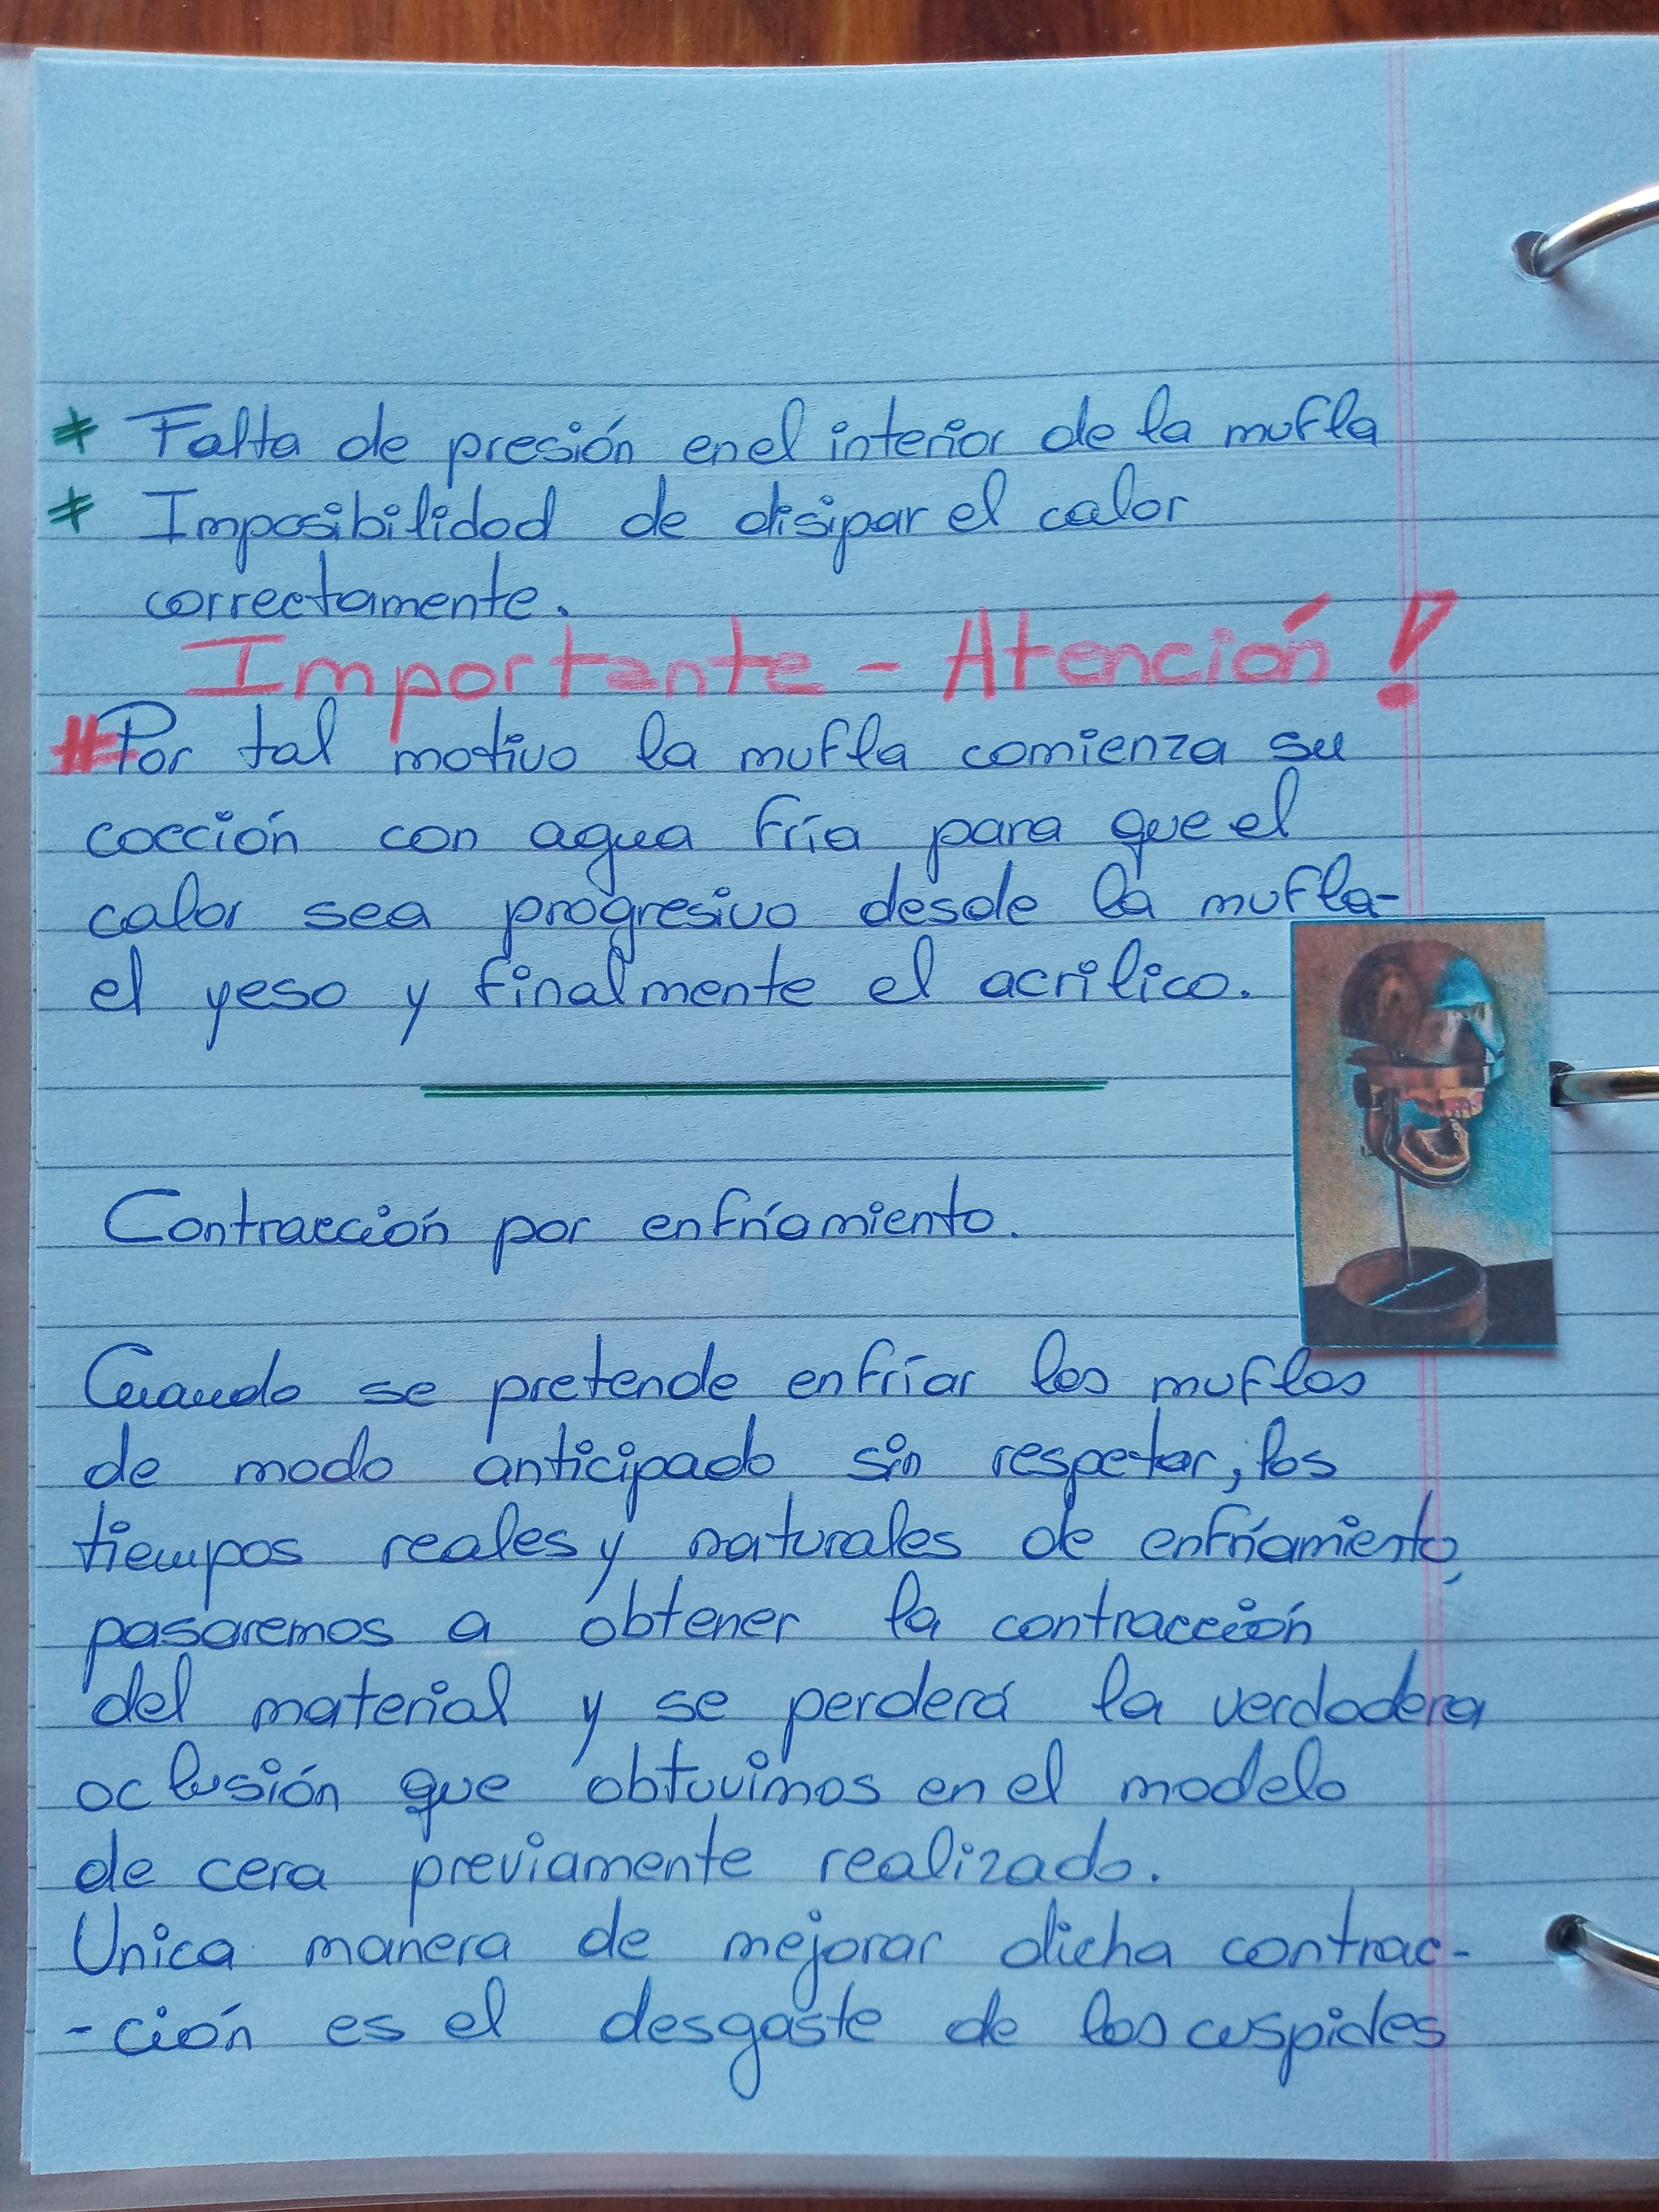 * Falta de presión en el interior de la mufla
* Imposibilidad de disipar el calor
correctamente.
Importante - Atención!
# Por tal motivo la mufla comienza su
cocción con agua fría para que el
calor sea progresivo desde la mufla-
el yeso y finalmente el acrilico.
Contracción por enfríamiento.
Cuando se pretende enfríar las muflas
de modo anticipado sin respetar, los
tiempos reales y naturales de enfríamiento,
pasaremos a obtener la contracción
del material y se perderá la verdadera
oclusión que obtuvimos en el modelo
de cera previamente realizado.
Unica manera de mejorar dicha contrac-
-ción es el desgaste de las cuspides